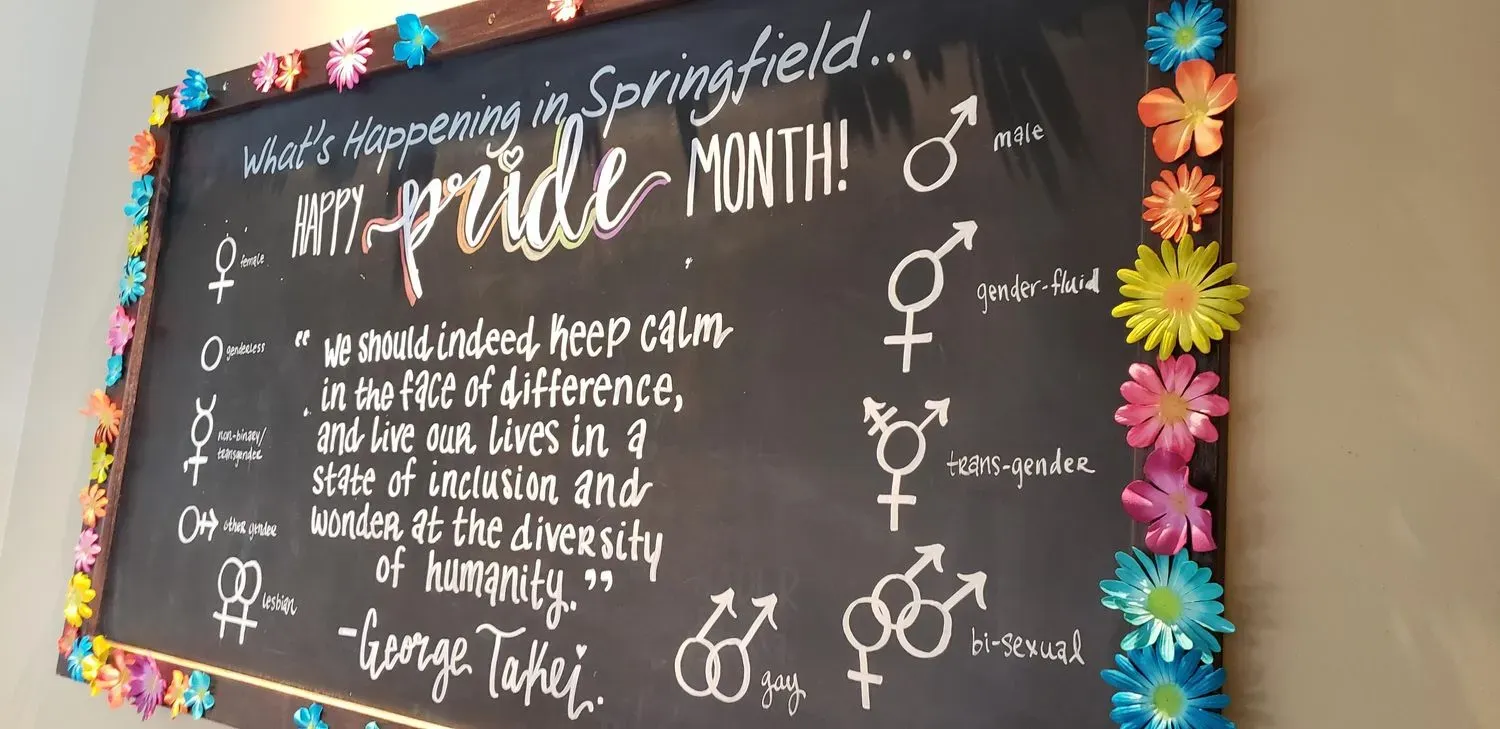 What's Happening in Springfield...
HAPPY pride MONTH!
male
female
gender-fluid
genderless
non-binary/
transgender
trans-gender
other gender
lesbian
bi-sexual
gay
“ we should indeed keep calm
in the face of difference,
and live our lives in a
state of inclusion and
wonder at the diversity
of humanity.”
-George Takei.